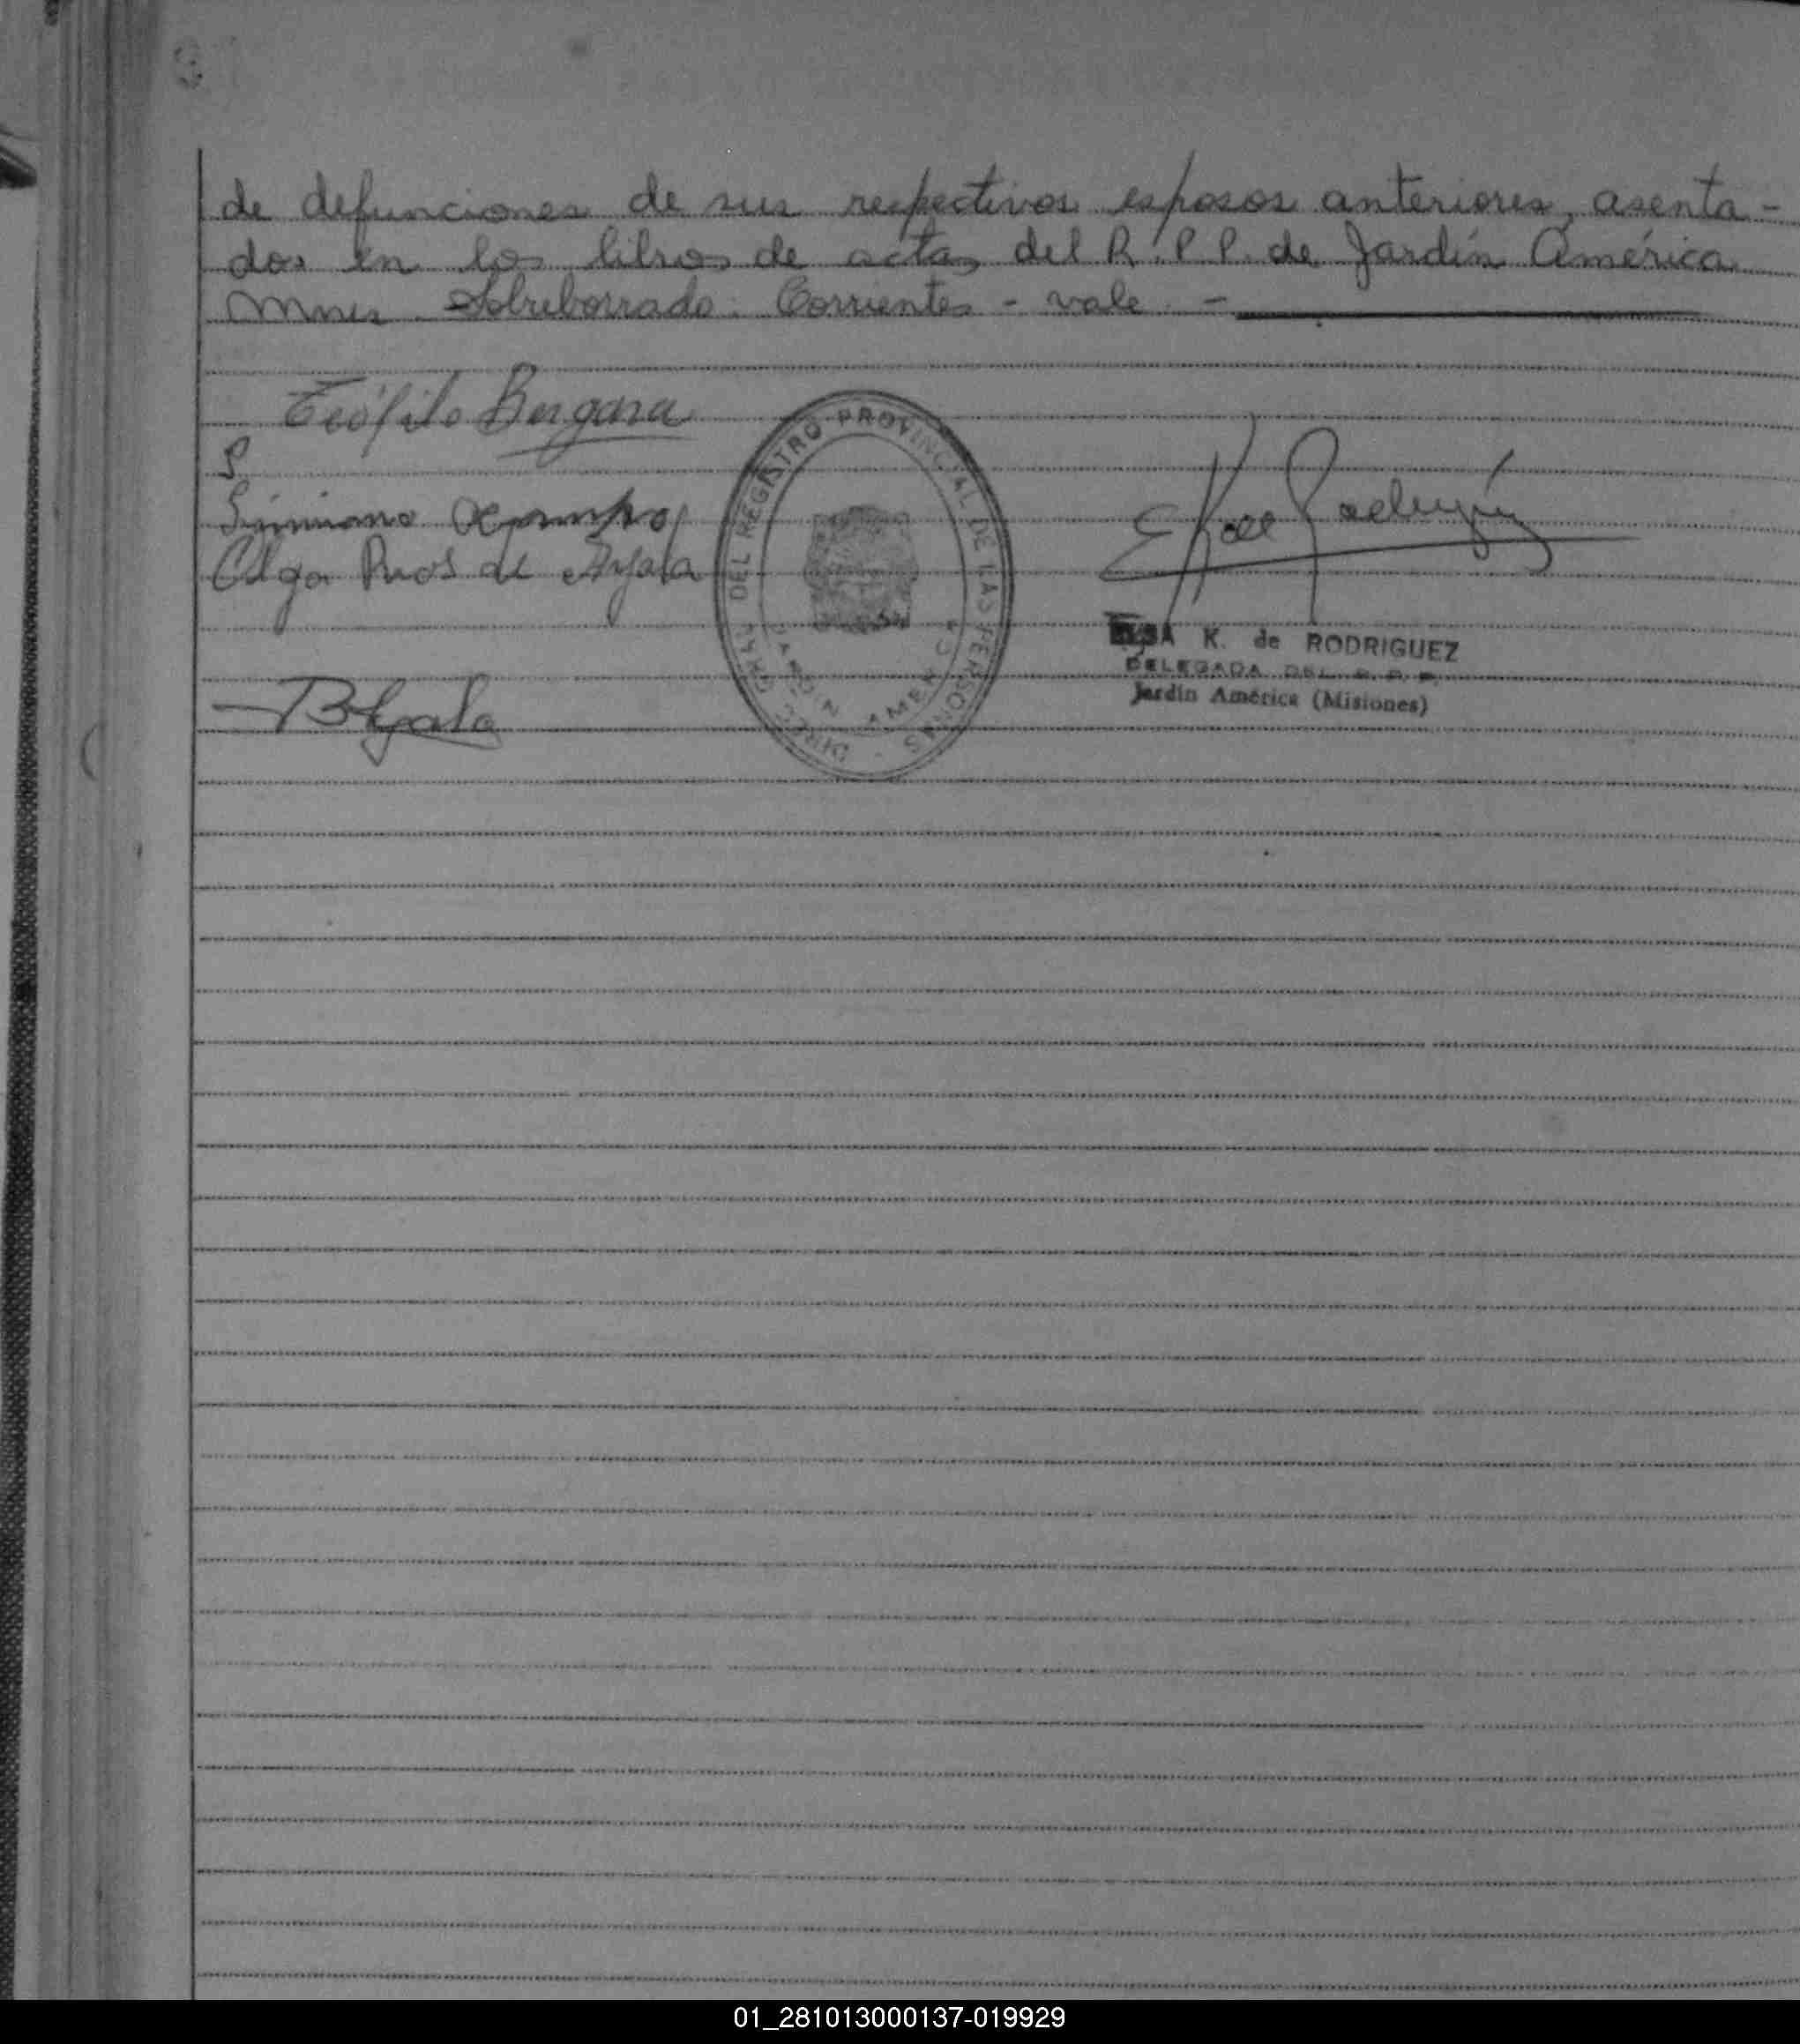 de defunciones de sus respectivos esposos anteriores, asenta-
dos en los libros de actas del R.P.P. de Jardín América
Mnes. Sobreborrado: Corrientes - vale -
Teófilo Bergara
S
Ocampo
Olga Rios de Ayala
BAyala
DIREC. GRAL. DEL REGISTRO PROVINCIAL DE LAS PERSONAS
JARDIN AMERICA
ELSA K. de RODRIGUEZ
DELEGADA DEL R. P. P.
Jardín América (Misiones)
01_281013000137-019929